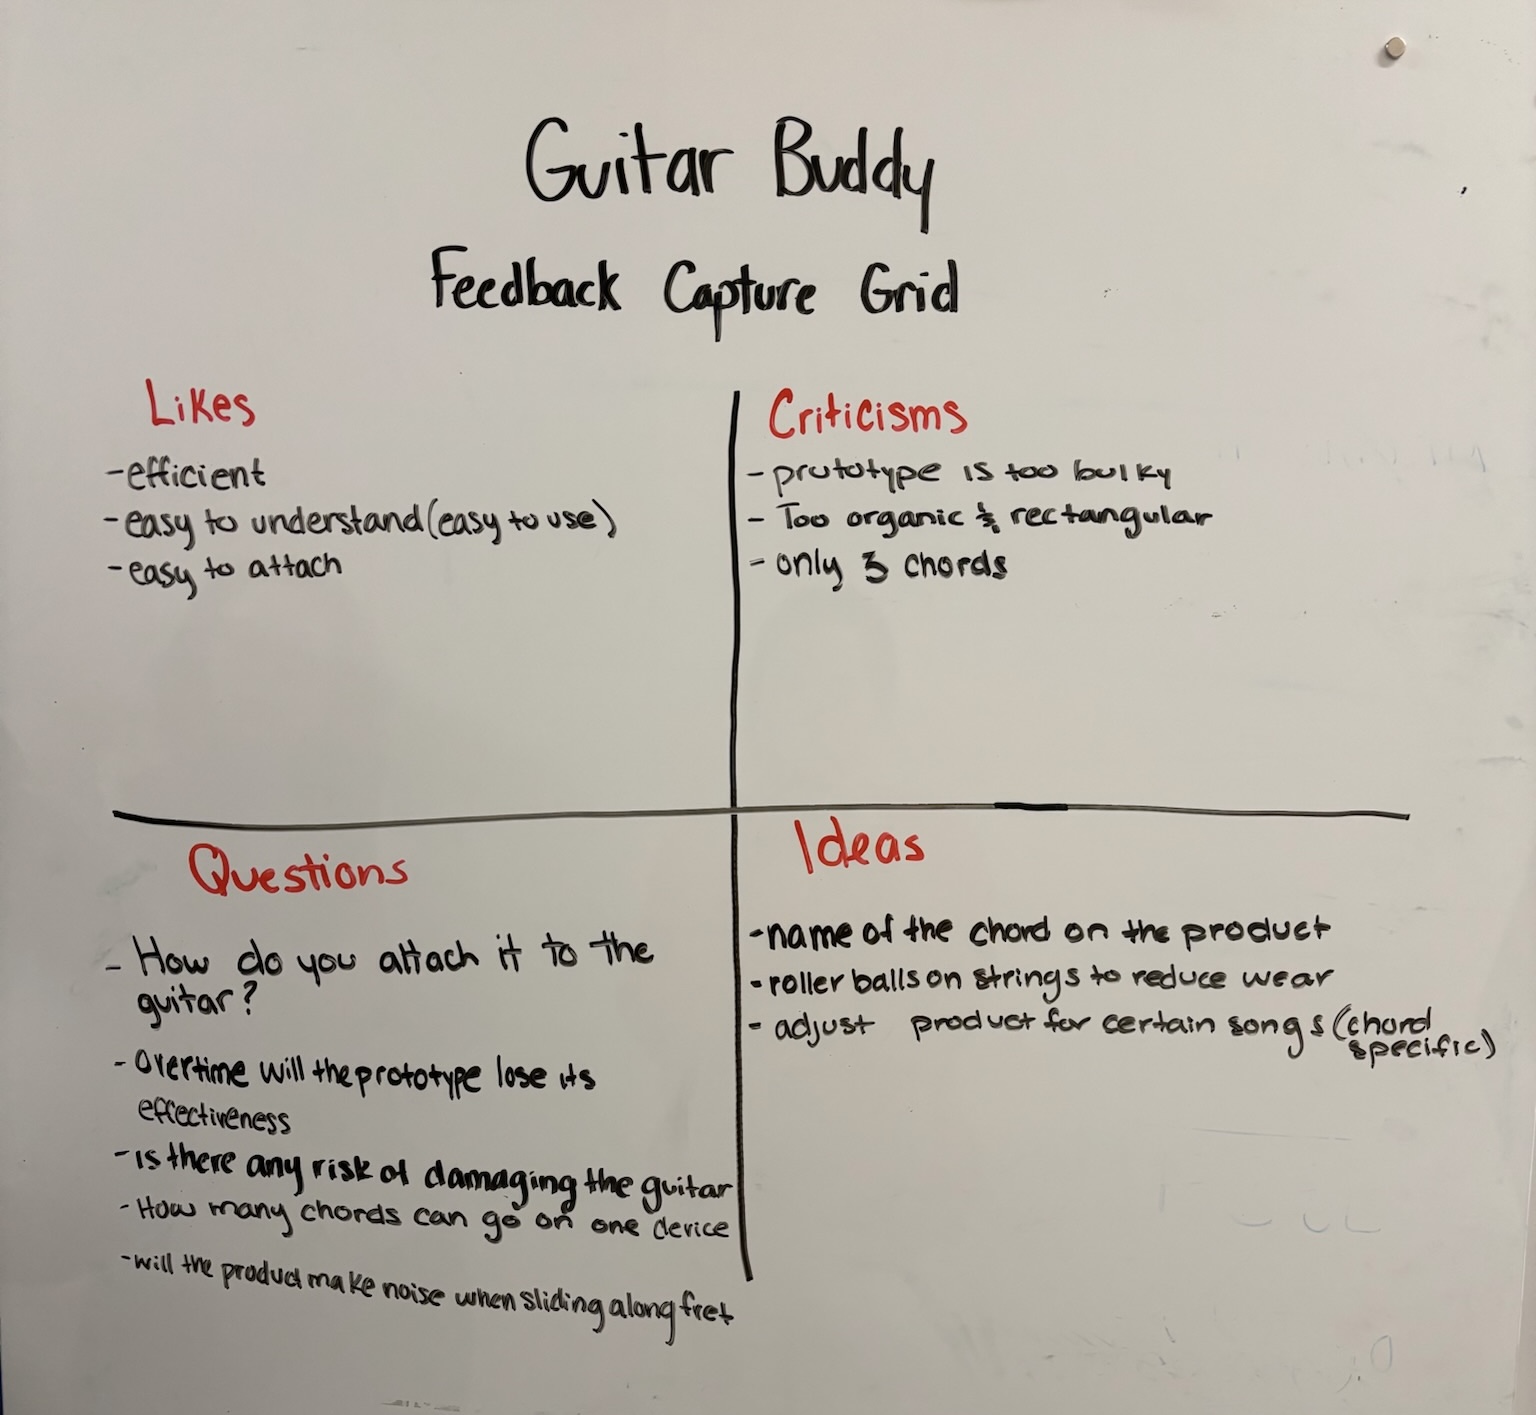 Guitar Buddy
Feedback Capture Grid
Likes
-efficient
-easy to understand(easy to use)
-easy to attach
Criticisms
- prototype is too bulky
- Too organic & rectangular
- only 3 chords
Questions
- How do you attach it to the
guitar?
- Overtime will the prototype lose its
effectiveness
- is there any risk of damaging the guitar
- How many chords can go on one device
- will the product make noise when sliding along fret
Ideas
-name of the chord on the product
-roller balls on strings to reduce wear
- adjust product for certain songs (chord
specific)